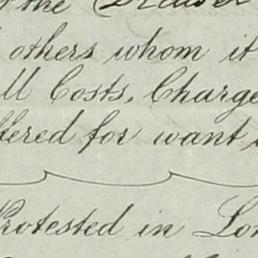 the Drawer
others whom it
ll Costs, Charge
ffered for want
Protested in Lon